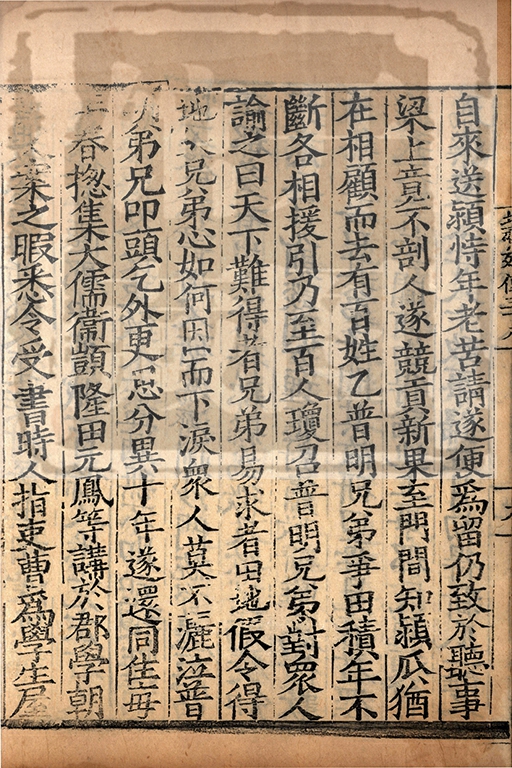 自來送潁恃年老苦請遂便爲留仍致於聽事
梁上竟不剖人遂競貢新果至門間知潁瓜猶
在相顧而去有百姓乙普明兄弟爭田積年不
斷各相援引乃至百人瓊召普明兄弟對衆人
諭之曰天下難得者兄弟易求者田地假令得
地失兄弟心如何因而下淚衆人莫不灑泣普
弟兄叩頭乞外更思分異十年遂還同住每
春揔集大儒衞顗隆田元鳳等講於郡學朝
之暇悉令受書時人指吏曹爲學生屋